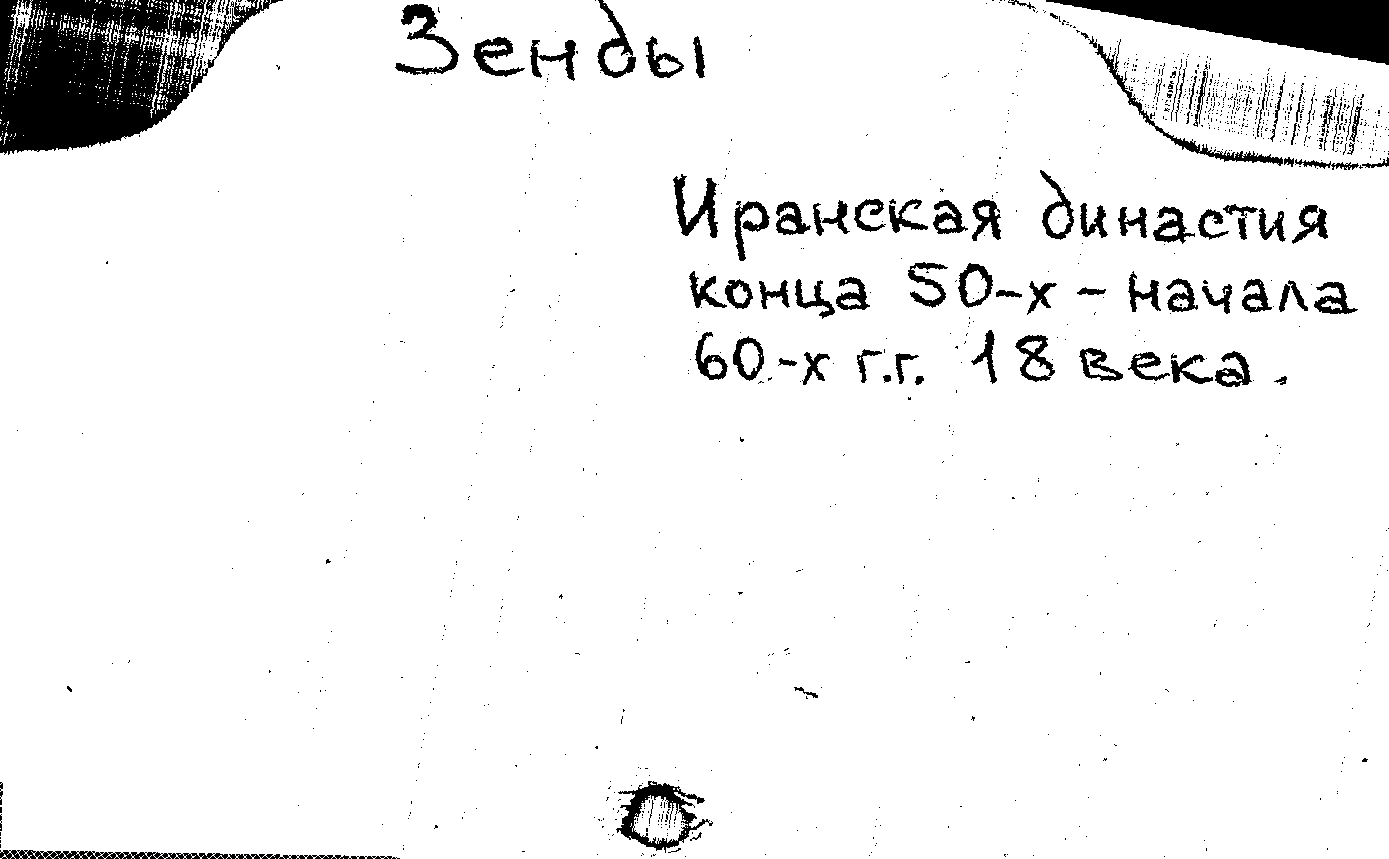 Зенды
Иранская династия
конца 50-х - начала
60-х г.г. 18 века.